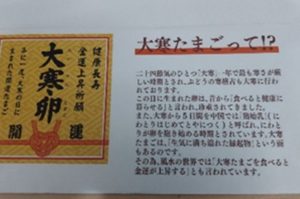 健康長寿
金運上昇祈願
大寒卵
開運
大寒たまごって!?
二十四節気のひとつ「大寒」一年で最も寒さが厳
しい時期とされ、
われております。
この日に生まれた卵は、昔から「食べると健康に
暮らせる」と言われ、珍重されてきました。
また、大寒から5日間を中国では「鶏始乳（に
わとりはじめてとやにつく）」と呼ばれ、にわと
りが卵を抱き始める時期とされています。大寒た
まごには、「生気に満ち溢れた縁起物」という面
もあるのです。
その為、風水の世界では「大寒たまごを食べると
金運が上昇する」とも言われています。